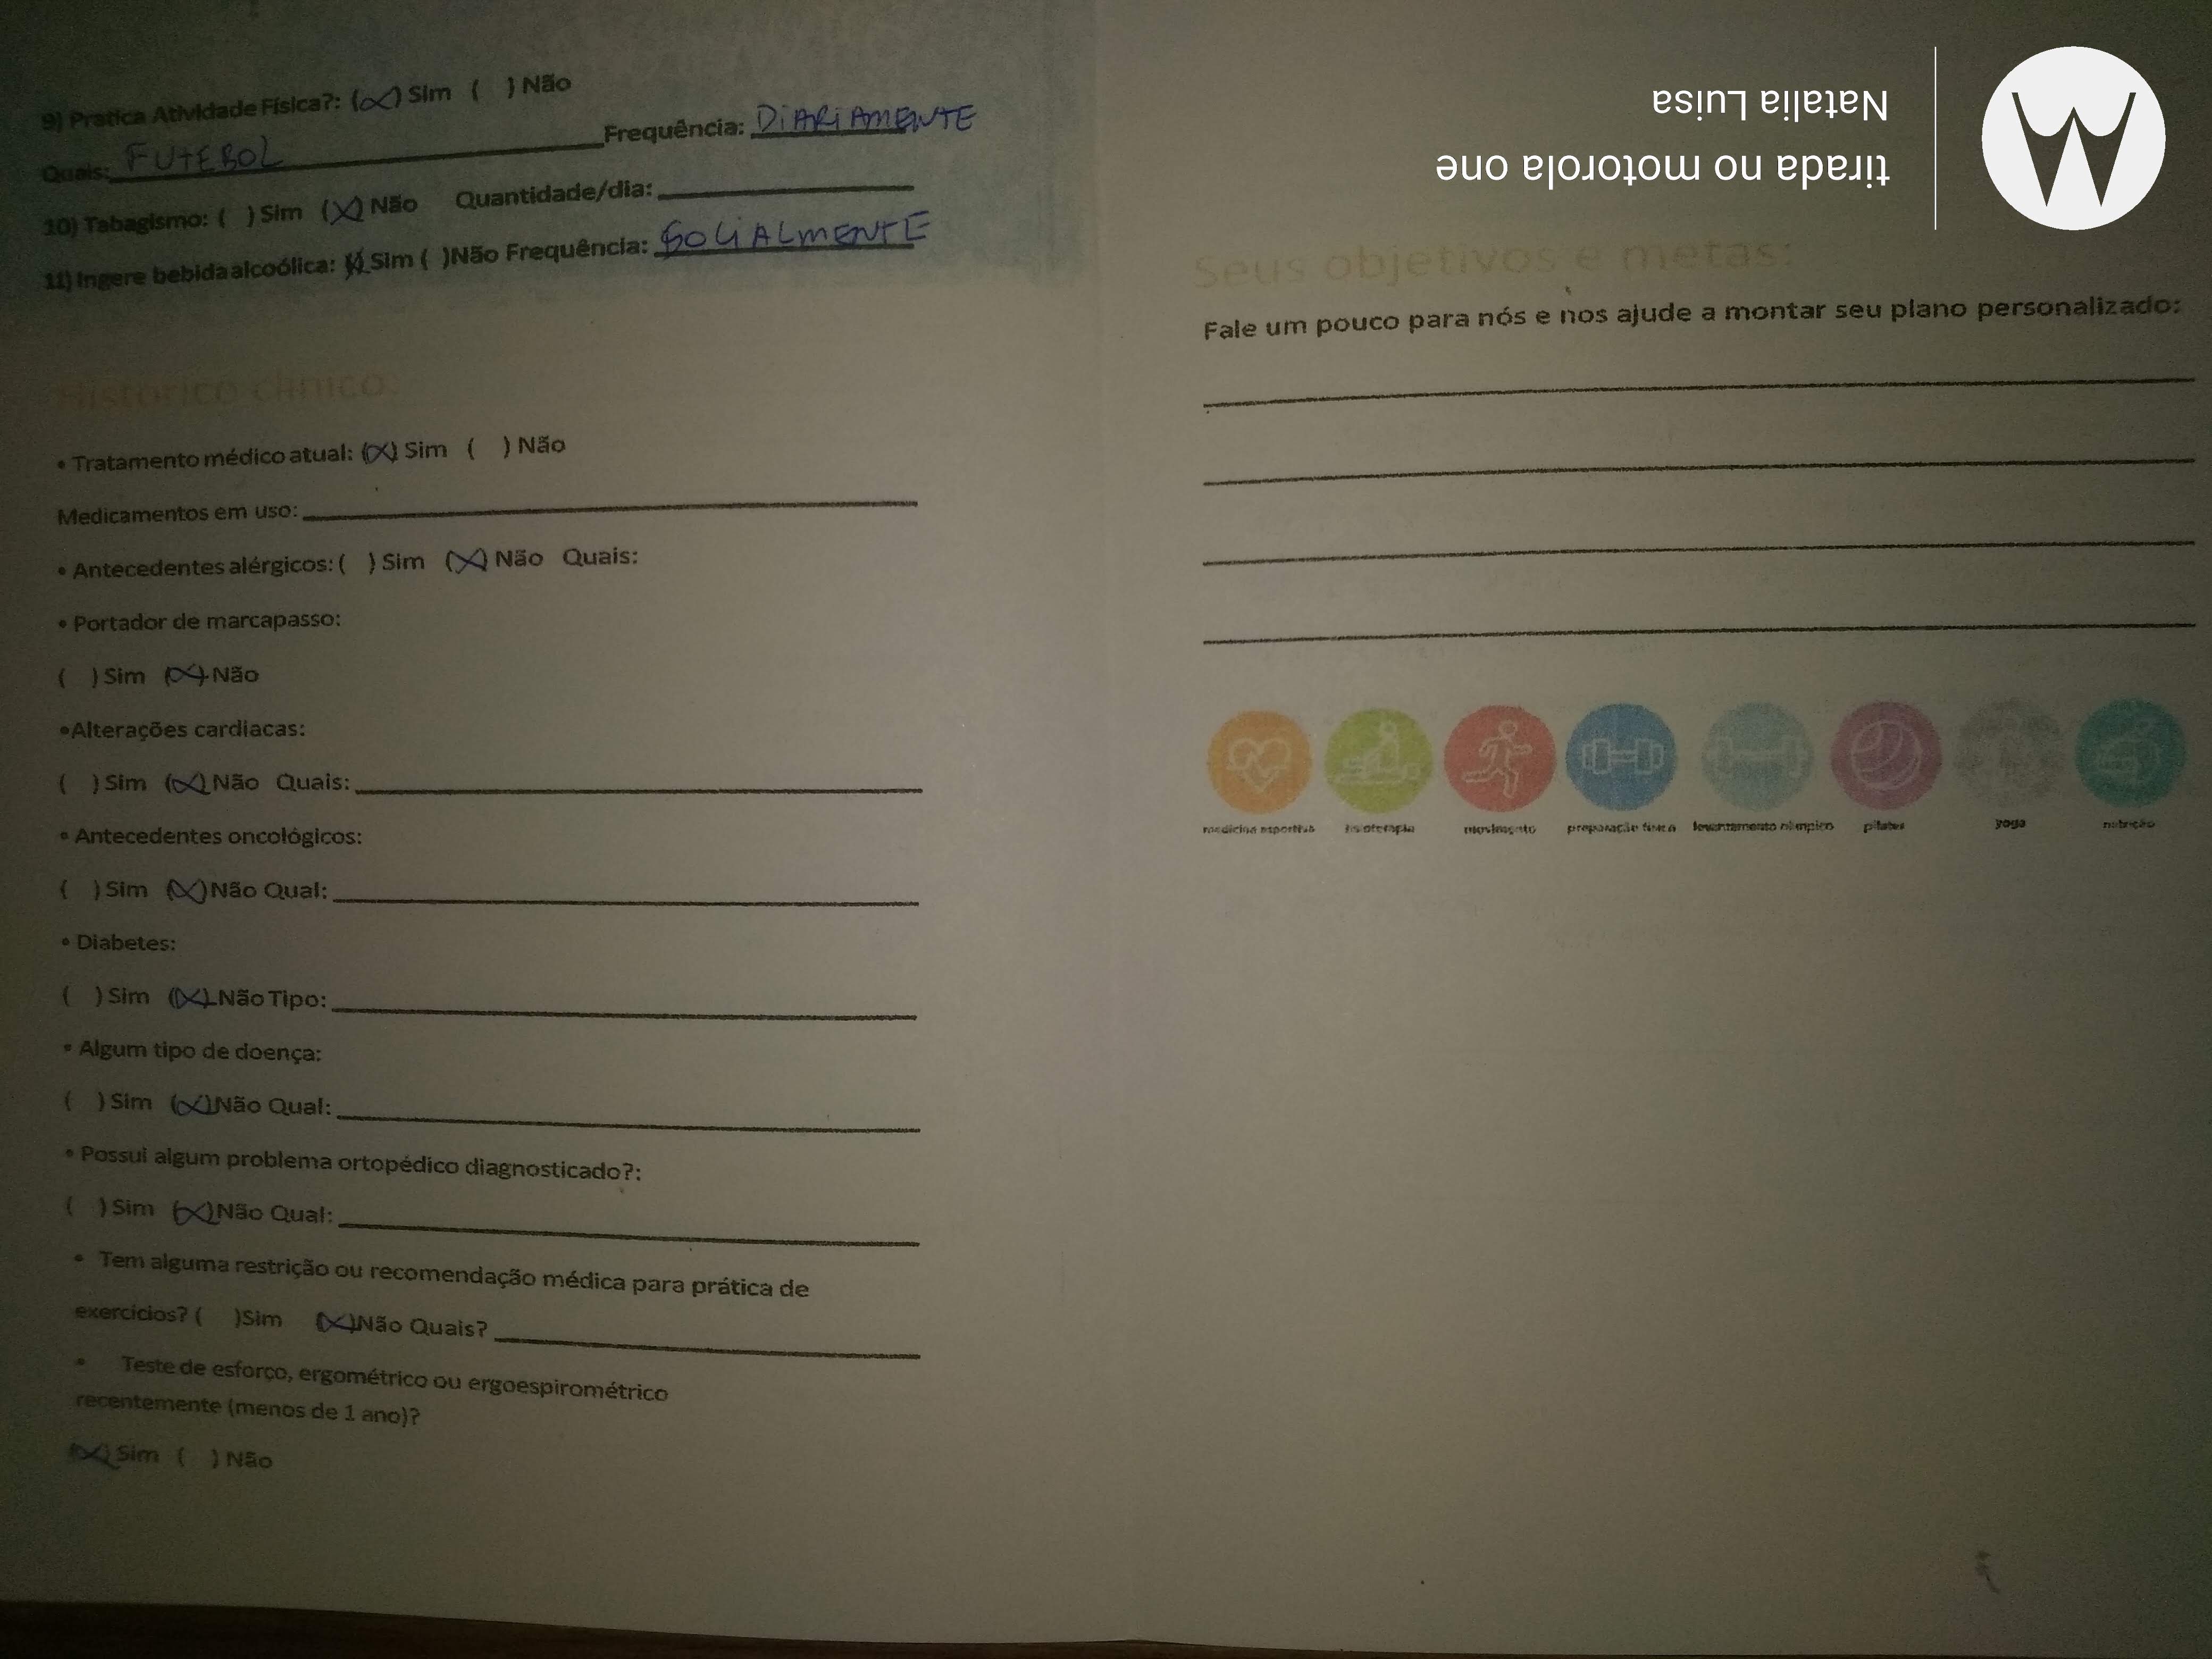 9) Pratica Atividade Física?: (X) Sim ( ) Não
Quais: FUTEBOL Frequência: DIARIAMENTE
10) Tabagismo: ( ) Sim (X) Não Quantidade/dia:
11) Ingere bebida alcoólica: (X) Sim ( ) Não Frequência: SOCIALMENTE
Histórico clínico:
• Tratamento médico atual: (X) Sim ( ) Não
Medicamentos em uso:
• Antecedentes alérgicos: ( ) Sim (X) Não Quais:
• Portador de marcapasso:
( ) Sim (X) Não
•Alterações cardíacas:
( ) Sim (X) Não Quais:
• Antecedentes oncológicos:
( ) Sim (X) Não Qual:
• Diabetes:
( ) Sim (X) Não Tipo:
• Algum tipo de doença:
( ) Sim (X) Não Qual:
• Possui algum problema ortopédico diagnosticado?:
( ) Sim (X) Não Qual:
• Tem alguma restrição ou recomendação médica para prática de
exercícios? ( )Sim (X)Não Quais?
• Teste de esforço, ergométrico ou ergoespirométrico
recentemente (menos de 1 ano)?
(X) Sim ( ) Não
Seus objetivos e metas:
Fale um pouco para nós e nos ajude a montar seu plano personalizado:
medicina esportiva fisioterapia movimento preparação física levantamento olímpico pilates yoga nutrição
tirada no motorola one
Natalia Luisa